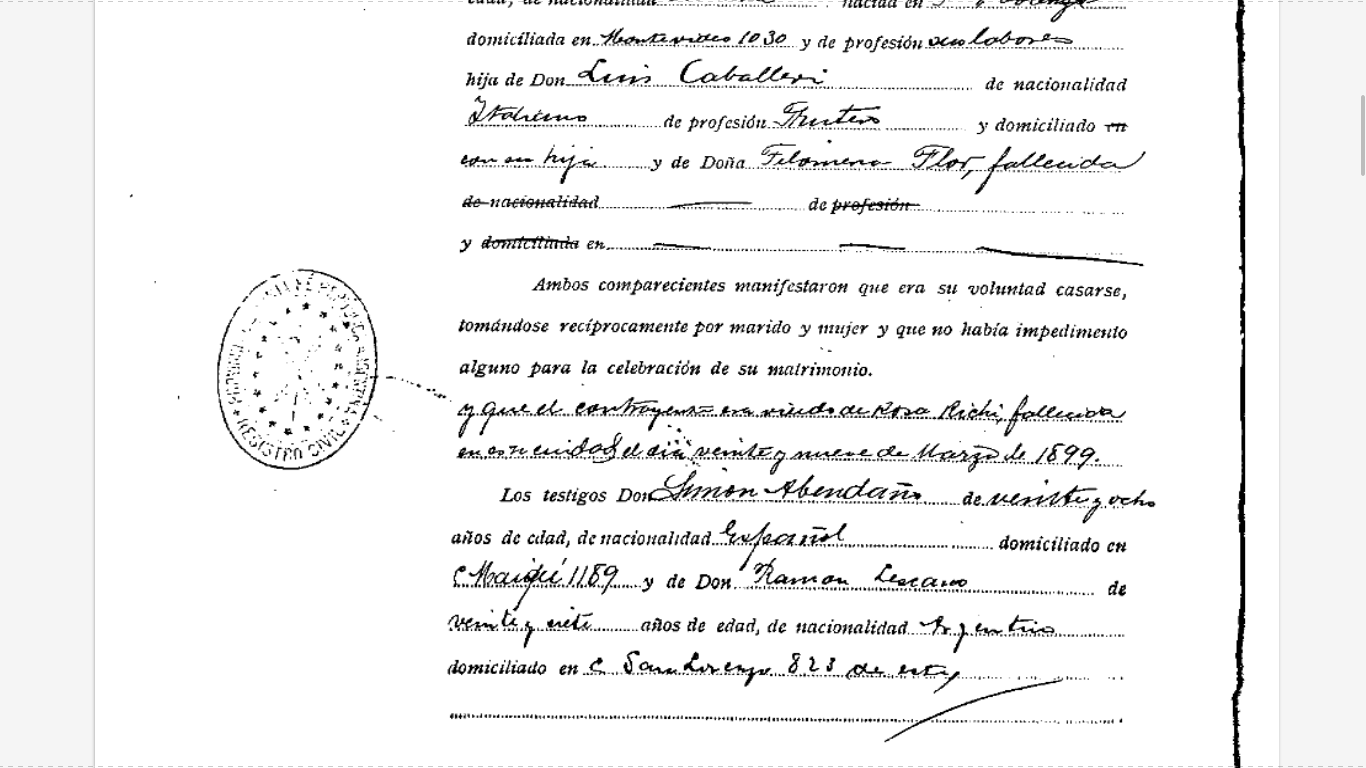 edad, de nacionalidad nacida en
domiciliada en Montevideo 1030 y de profesión sus labores
hija de Don Luis Caballeri de nacionalidad
Italiano de profesión Frutero y domiciliado en
con su hija y de Doña Filomena Flor, fallecida
de nacionalidad de profesión
y domiciliada en
Ambos comparecientes manifestaron que era su voluntad casarse,
tomándose recíprocamente por marido y mujer y que no había impedimento
alguno para la celebración de su matrimonio.
y que el contrayente era viudo de Rosa Richi, fallecida
en esta ciudad el dia veinte y nueve de Marzo de 1899.
Los testigos Don Simon Abendaño de veinte y ocho
años de edad, de nacionalidad Español domiciliado en
C Maipú 1189 y de Don Ramon Lescano de
veinte y siete años de edad, de nacionalidad Argentino
domiciliado en C San Lorenzo 823 de esta
REGISTRO CIVIL